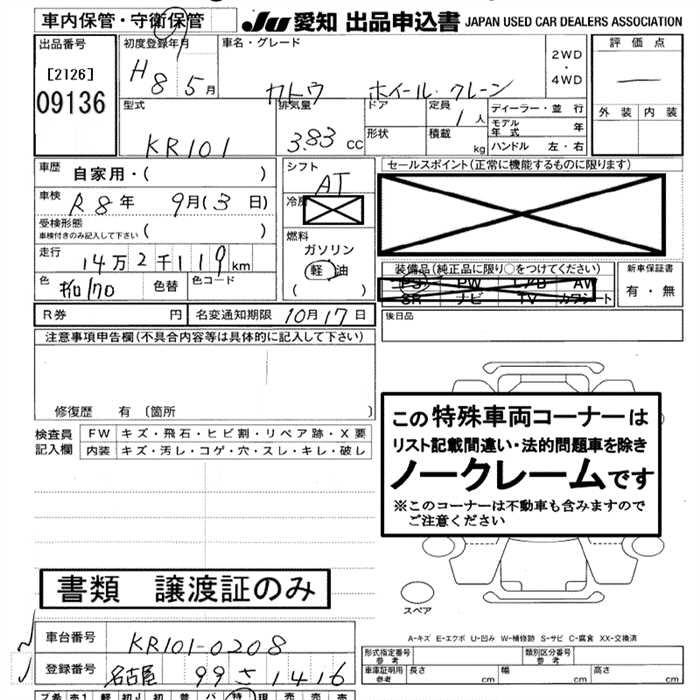 車内保管・守衛保管
JU 愛知 出品申込書 JAPAN USED CAR DEALERS ASSOCIATION
出品番号
[2126]
09136
初度登録年月
H8 5月
車名・グレード
カトウ ホイール・クレーン
2WD
・
4WD
評価点
外装 内装
型式
KR101
排気量
3.83 CC
ドア
形状
定員
1人
積載
kg
ディーラー・並行
モデル年式 年
ハンドル 左・右
車歴
自家用・( )
車検
R8年 9月(3日)
受検形態
車検付きのみ記入して下さい ( )
走行
14万2千119km
色
色替
色コード
シフト
AT
冷房
燃料
ガソリン
軽油
( )
セールスポイント(正常に機能するものに限ります)
装備品(純正品に限り○をつけてください)
PS PW エアB AW
SR ナビ TV カワシート
新車保証書
有・無
R券 円
名変通知期限 10月17日
後日品
注意事項申告欄(不具合内容等は具体的に記入して下さい)
修復歴 有 〔箇所 〕
検査員記入欄
FW キズ・飛石・ヒビ割・リペア跡・X要
内装 キズ・汚レ・コゲ・穴・スレ・キレ・破レ
この特殊車両コーナーは
リスト記載間違い・法的問題車を除き
ノークレームです
※このコーナーは不動車も含みますので
ご注意ください
書類 譲渡証のみ
スペア
A-キズ E-エクボ U-凹み W-補修跡 S-サビ C-腐食 XX-交換済
車台番号
KR101-0208
登録番号
名古屋 99さ1416
形式指定番号
参考
類別区分番号
参考
車庫証明用
参考
長さ cm
幅 cm
高さ cm